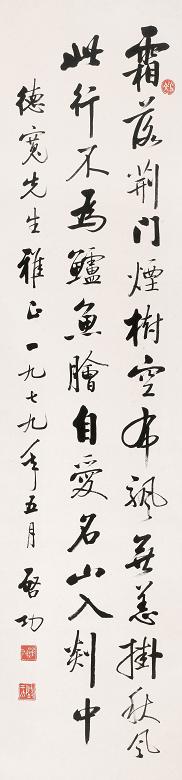 霜落荆門煙樹空布颿無恙掛秋風
此行不為鱸魚膾自愛名山入剡中
德寬先生雅正一九七九年五月 啓功